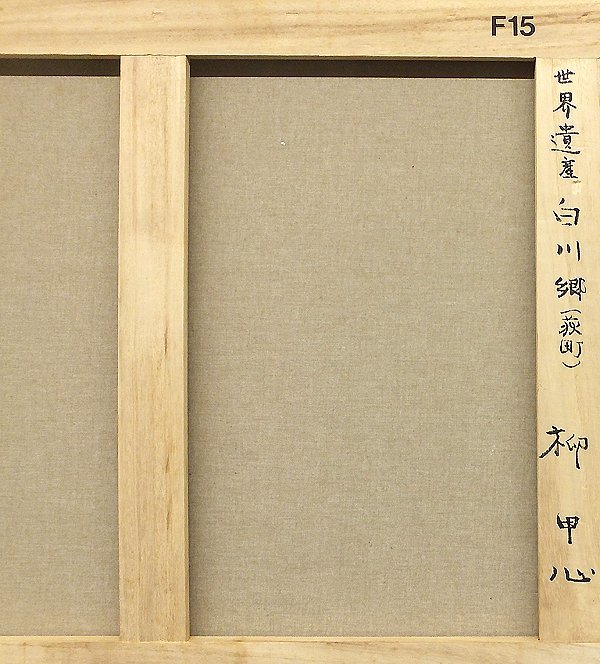 F15
世界遺産 白川郷(荻町) 柳 甲心